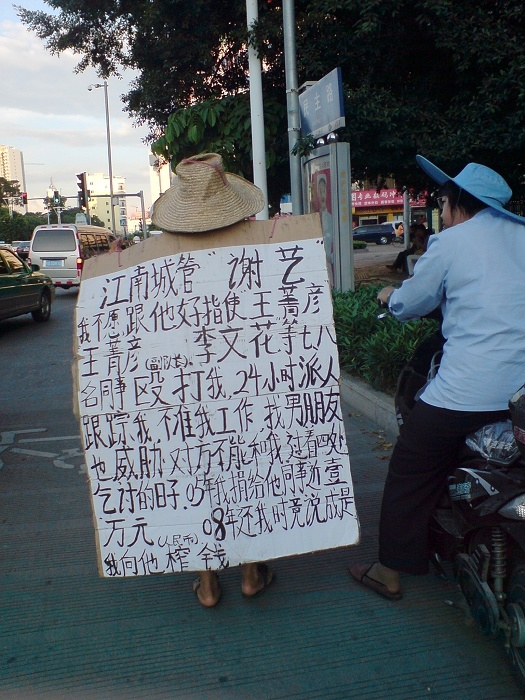 江南城管"谢艺
我不愿跟他好指使王菁彦
王菁彦(副队长).李文花等七八
名同事殴打我.24小时派人
跟踪我.不准我工作.我男朋友
也威胁对方不能和我.过着四处
乞讨的日子.05年我捐给他同事近壹
万元(人民币)08年还我时竟说成是
我向他榨钱